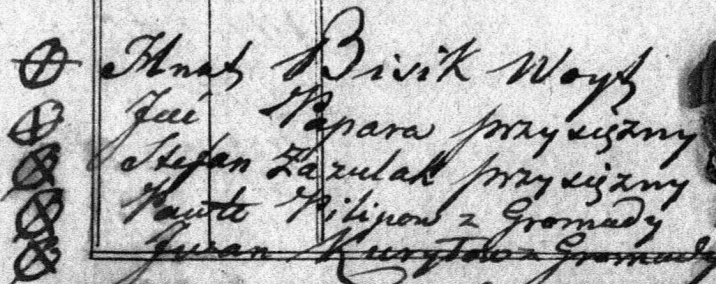 Hnat Bisik Woyt
Jać Papara przysiężny
Stefan Zazulak przysiężny
Pawło Pilipow z Gromady
Iwan Kuryłow z Gromady